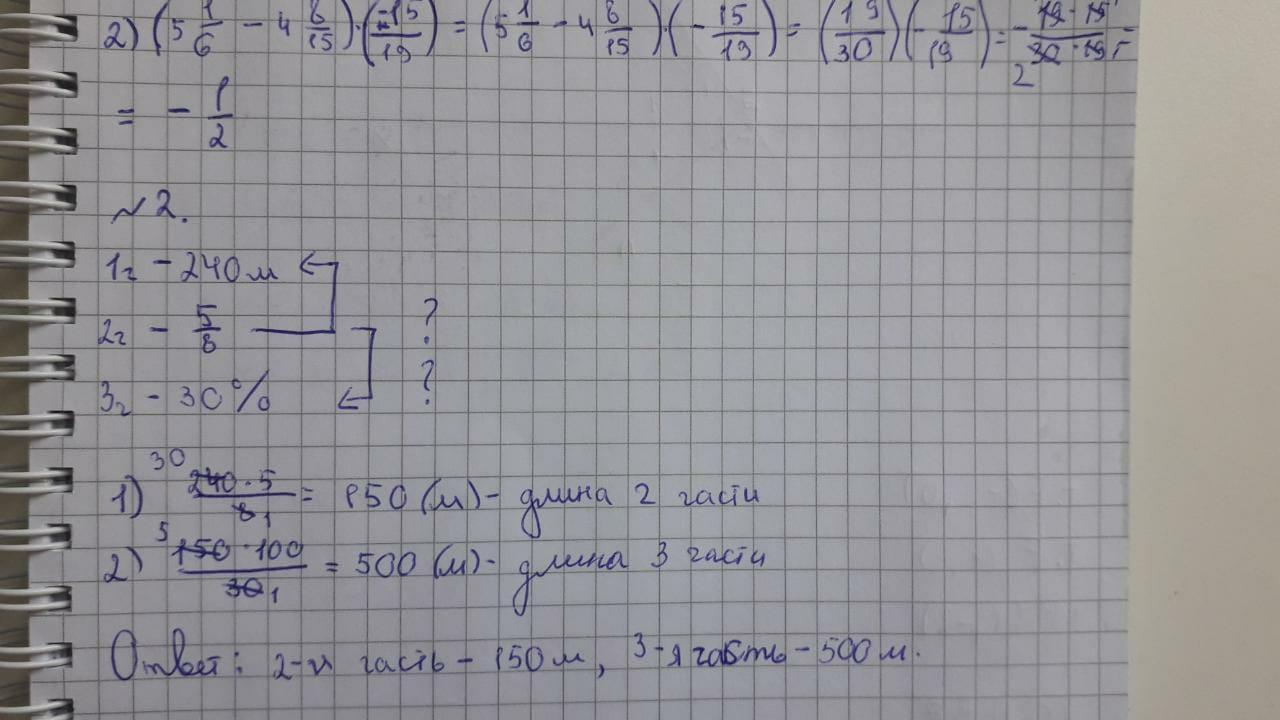 2) (5 1/6 − 4 8/15) · (−15/19) = (5 1/6 − 4 8/15) · (− 15/19) = (19/30)(− 15/19) = − 19 · 15/30 · 19 =
2
= − 1/2
№2.
1ч − 240м
2ч − 5/8 ?
3ч − 30% ?
30
1) 240 · 5/8 1 = 150 (м) - длина 2 части
5
2) 150 · 100/30 1 = 500 (м) - длина 3 части
Ответ: 2-я часть − 150м, 3-я часть − 500м.